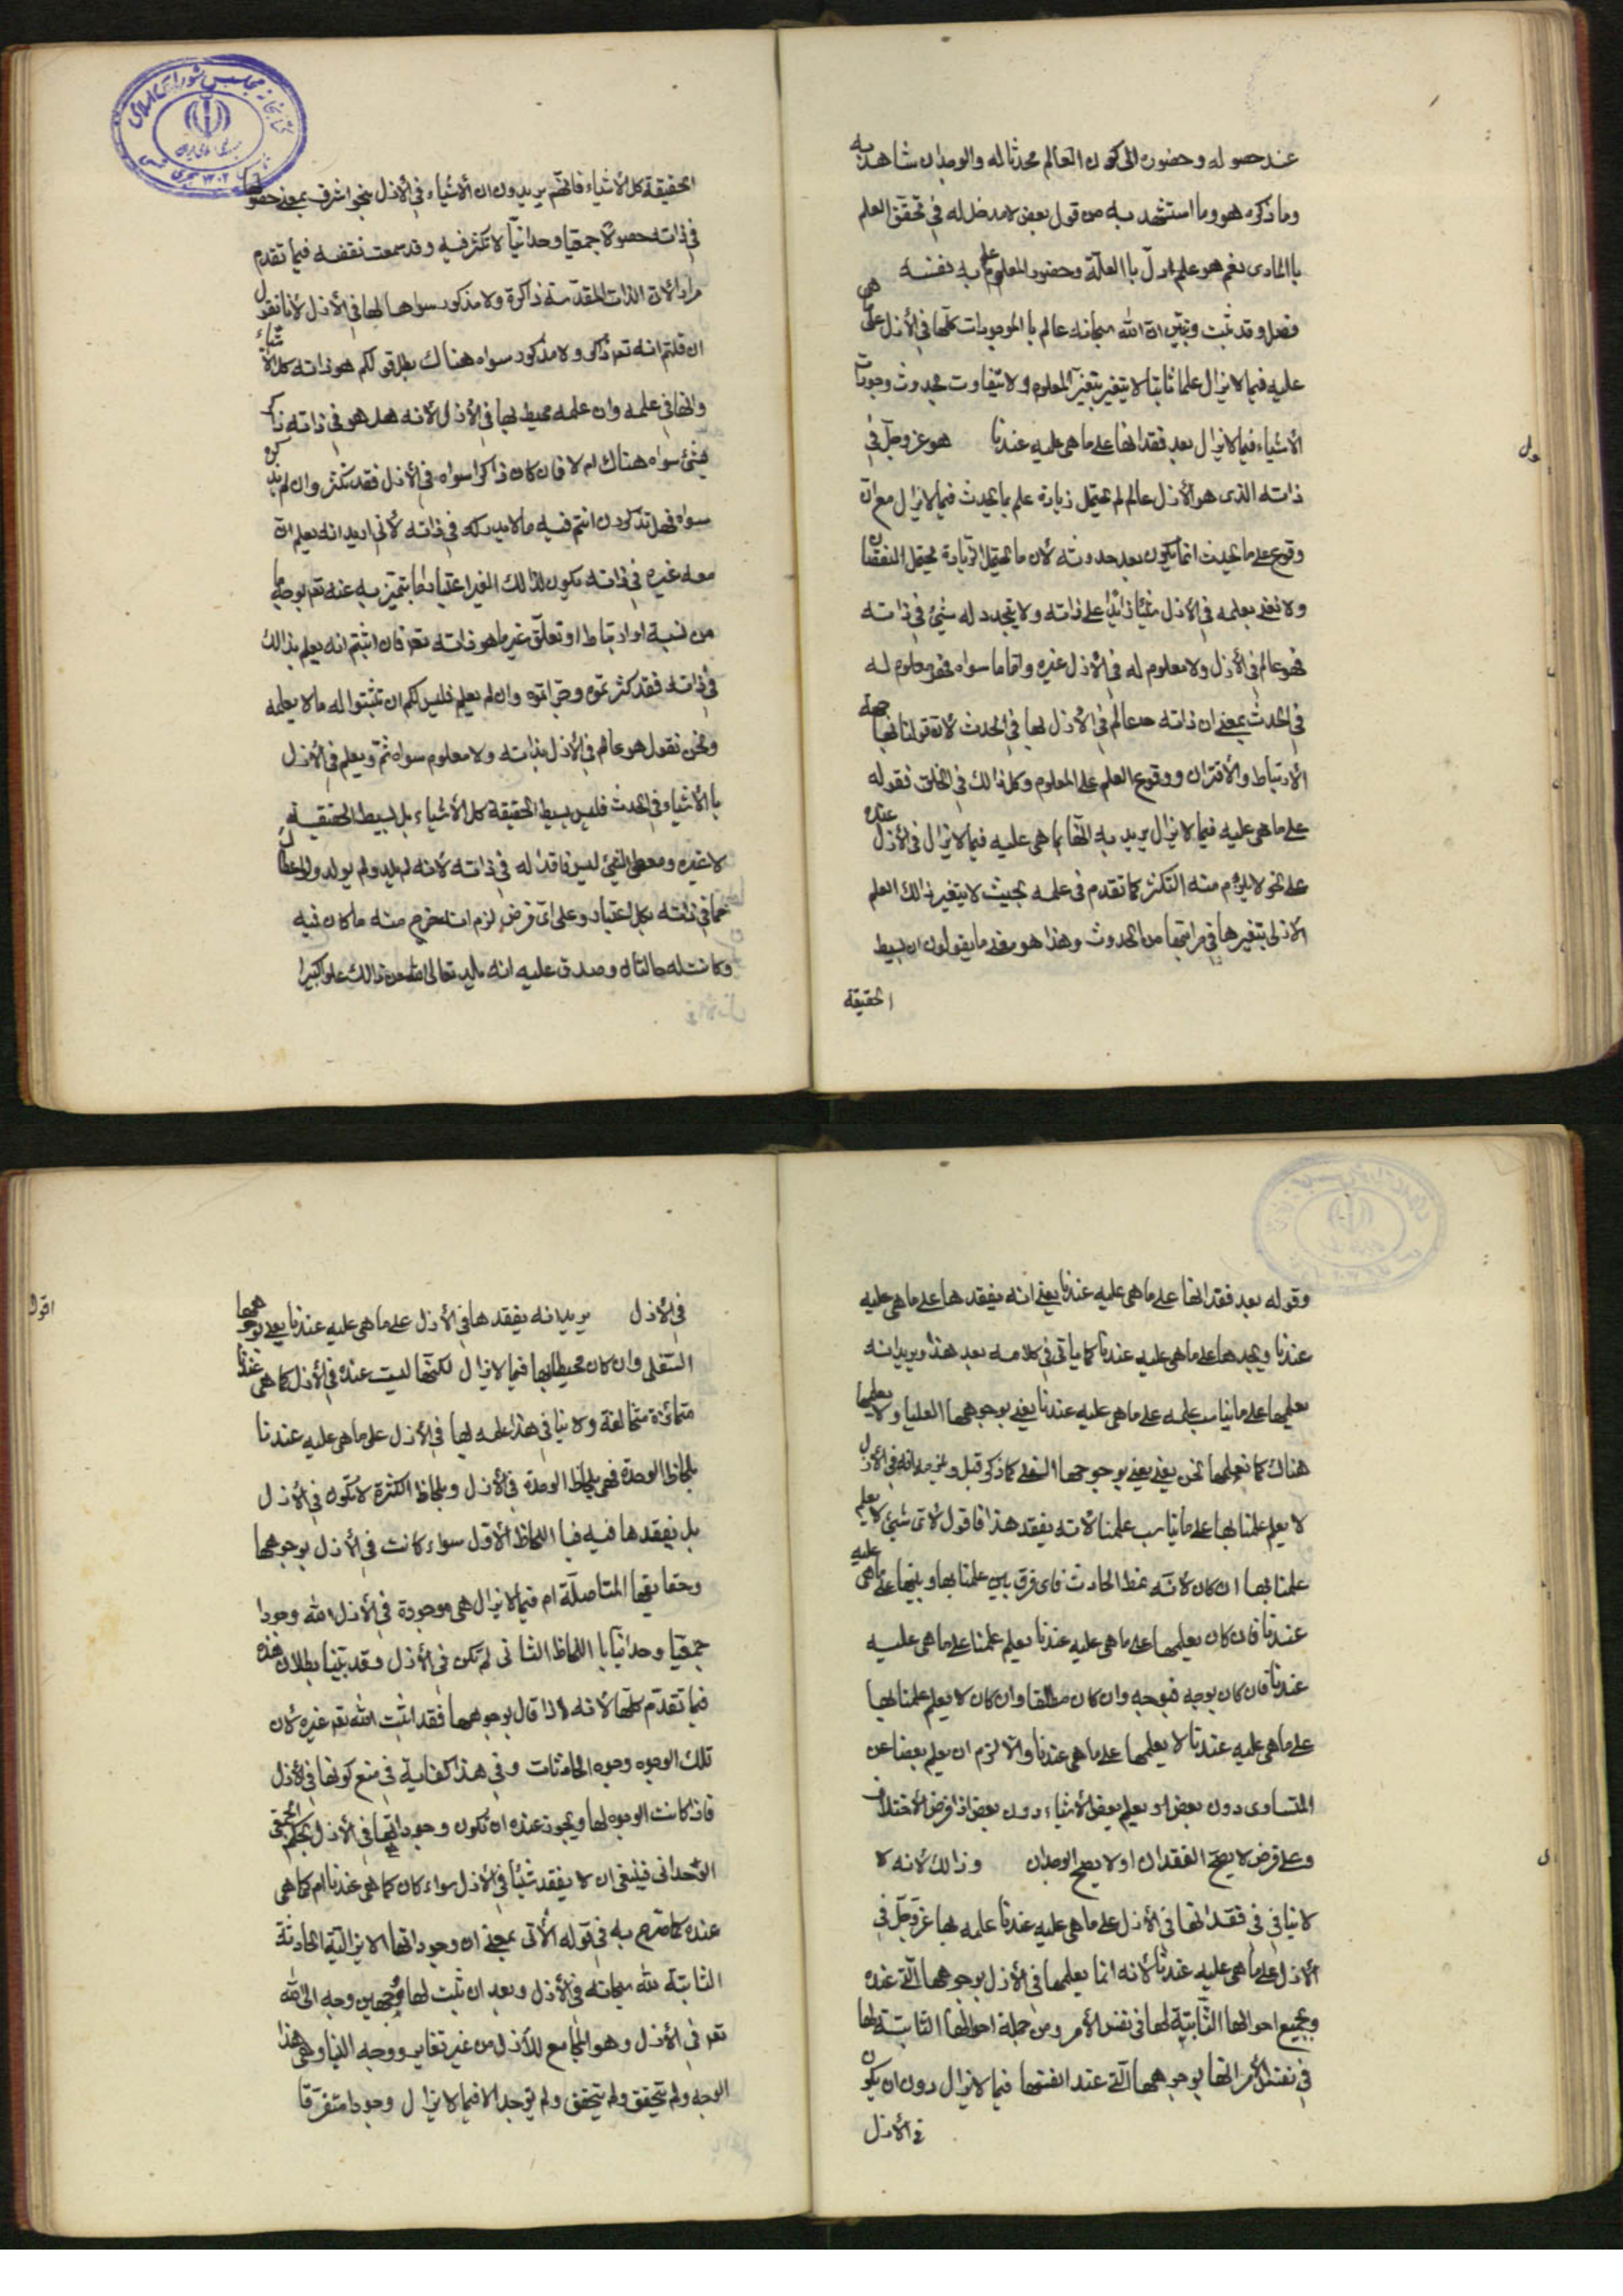 عند حصوله وحضوره الى كون العالم محدثا له والوجدان شاهد به
وما ذكره هو وما استشهد به من قول بعض لا مدخل له في تحقق العلم
با المادي نعم هو علم اول با العلة وحضور المعلوم علم به بنفسه
فصل وقد ثبت وتبين ان الله سبحانه عالم با الموجودات كلها في الأزل على ما هى
عليه فيما لا يزال علما ثابتا لا يتغير بتغير المعلوم ولا يتفاوت بحدوث وجودات
الأشياء فيما لا يزال بعد فقدانها على ما هى عليه عندنا هو عز وجل في
ذاته الذى هو الأزل عالم لم يحتمل زيادة علم بما يحدث فيما لا يزال مع ان
وقوع على ما يحدث انما يكون بعد حدوثه لأن ما يحتمل الزيادة يحتمل النقصان
ولا نعنى بعلمه في الأزل شيئا زائدا على ذاته ولا يتجدد له شيئ في ذاته
فهو عالم في الأزل ولا معلوم له في الأزل غيره واما ما سواه فهو معلوم له
في الحدث بمعنى ان ذاته عالم في الأزل بها في الحدث لأن قولنا بها جهة
الأرتباط والأقتران ووقوع العلم على المعلوم وكل ذالك في الخلق فقوله
على ما هى عليه فيما لا يزال يريد به انها بما هى عليه فيما لا يزال في الأزل عنده
على نحو لا يلزم منه التكثر كما تقدم في علمه بحيث لا يتغير ذالك العلم
الأزلى بتغيرها في مراتبها من الحدوث وهذا هو معنى ما يقولون ان بسيط
الحقيقة
الحقيقة كل الأشياء فانهم يريدون ان الأشياء في الأزل بنحو اشرف بمعنى حصولها
في ذاته حصولا جمعيا وحدانيا لا تكثر فيه وقد سمعت نقضه فيما تقدم
مرارا لأن الذات المقدسة ذاكرة ولا مذكور سواها لها في الأزل لأنا نقول
ان قلتم انه تع ذاكر ولا مذكور سواه هناك بطل قولكم هو ذاته كل الأشياء
وانها في علمه وان علمه محيط بها في الأزل لأنه هل هو في ذاته ذاكر
لشيئ سواه هناك ام لا فان كان ذاكرا سواه في الأزل فقد تكثر وان لم يذكره
سواه فهل تدركون انتم فيه ما لا يدركه في ذاته لأنى اريد انه يعلم ان
معه غيره في ذاته يكون لذالك الغير اعتبار ما يتميز به عنه تع بوجه ما
من نسبة او ارتباط او تعلق غير ما هو ذاته تع فان اثبتم انه يعلم بذالك
في ذاته فقد كثرتموه وجزأتموه وان لم يعلم فليس لكم ان تثبتوا له ما لا يعلمه
ونحن نقول هو عالم في الأزل بذاته ولا معلوم سواه ثم ويعلم في الأزل
با الأشياء في الحدث فليس بسيط الحقيقة كل الأشياء بل بسيط الحقيقة
لا غيره ومعطى الشيئ ليس فاقدا له في ذاته لأنه لم يلد ولم يولد ولو اعطى
مما في ذاته بكل اعتبار وعلى اى فرض لزم انه خرج منه ما كان فيه
وكانت له حالتان وصدق عليه انه يلد تعالى الله عن ذالك علوا كبيرا
وقوله بعد فقدانها على ما هى عليه عندنا يعنى انه يفقدها على ما هى عليه
عندنا ويجدها على ما هى عليه عندنا كما ياتى في كلامه بعد هذا ويريد انه
يعلمها على ما يناسب علمه على ما هى عليه عندنا يعنى بوجوهها العليا ولا يعلمها
هناك كما نعلمها نحن يعنى يعنى بوجوهها السفلى كما ذكر قبل ويلزمه انه في الأزل
لا يعلم علمنا بها على ما يناسب علمنا لأنه يفقد هذا فاقول لأى شيئ لا يعلم
علمنا بها ان كان لأنه نمط الحادث فاى فرق بين علمنا بها وبينها على ما هى عليه
عندنا فان كان يعلمها على ما هى عليه عندنا يعلم علمنا على ما هى عليه
عندنا فان كان بوجه فبوجه وان كان مطلقا وان كان لا يعلم علمنا بها
على ما هى عليه عندنا لا يعلمها على ما هى عندنا والا لزم ان يعلم بعضا عن
المتساوى دون بعض او يعلم بعض الأشياء دون بعض اذا فرض الأختلاف
وعلى فرض لا يصح الفقدان او لا يصح الوجدان وذالك لأنه لا
لا ينافي في فقدانها في الأزل على ما هى عليه عندنا علمه بها عز وجل في
الأزل على ما هى عليه عندنا لأنه انما يعلمها في الأزل بوجوهها التى عنده
وبجميع احوالها الثابتة لها في نفس الأمر ومن جملة احوالها الثابتة لها
في نفس الأمر انها بوجوهها التى عند انفسها فيما لا يزال دون ان يكون
في الأزل
اقول
في الأزل يريد انه يفقدها في الأزل على ما هى عليه عندنا يعنى بوجوهها
السفلى وان كان محيطا بها فيما لا يزال لكنها ليست عنده في الأزل كما هى عندنا
متمائزة متخالفة ولا ينافي هذا علمه لها في الأزل على ما هى عليه عندنا
بلحاظ الوحدة فهى بلحاظ الوحدة في الأزل وبلحاظ الكثرة لا تكون في الأزل
بل يفقدها فيه فبا اللحاظ الأول سواء كانت في الأزل بوجوهها
وحقايقها المتاصلة ام فيما لا يزال هى موجودة في الأزل لله وجودا
جمعيا وحدانيا با اللحاظ الثانى لم تكن في الأزل وقد بينا بطلان هذه
فيما تقدم كلها لأنه اذا قال بوجوهها فقد اثبت الله تع غيره لأن
تلك الوجوه وجوه الحادثات وفي هذا كفاية في منع كونها في الأزل
فاذا كانت الوجوه لها ويجوز عنده ان تكون وجوداتها في الأزل بحكم الجمعى
الوحدانى فينبغى ان لا يفقد شيئا في الأزل سواء كان كما هى عندنا ام كما هى
عنده كما صرح به في قوله الأتى بمعنى ان وجوداتها الا يزالية الحادثة
الثابتة لله سبحانه في الأزل وبعد ان ثبت لها وجهين وجه الى الله
تع في الأزل وهو الجامع للأزل من غير تغاير ووجه الينا وهى هذا
الوجه ولم يتحقق ولم يتحقق ولم توجد الا فيما لا يزال وجودا متفرقا